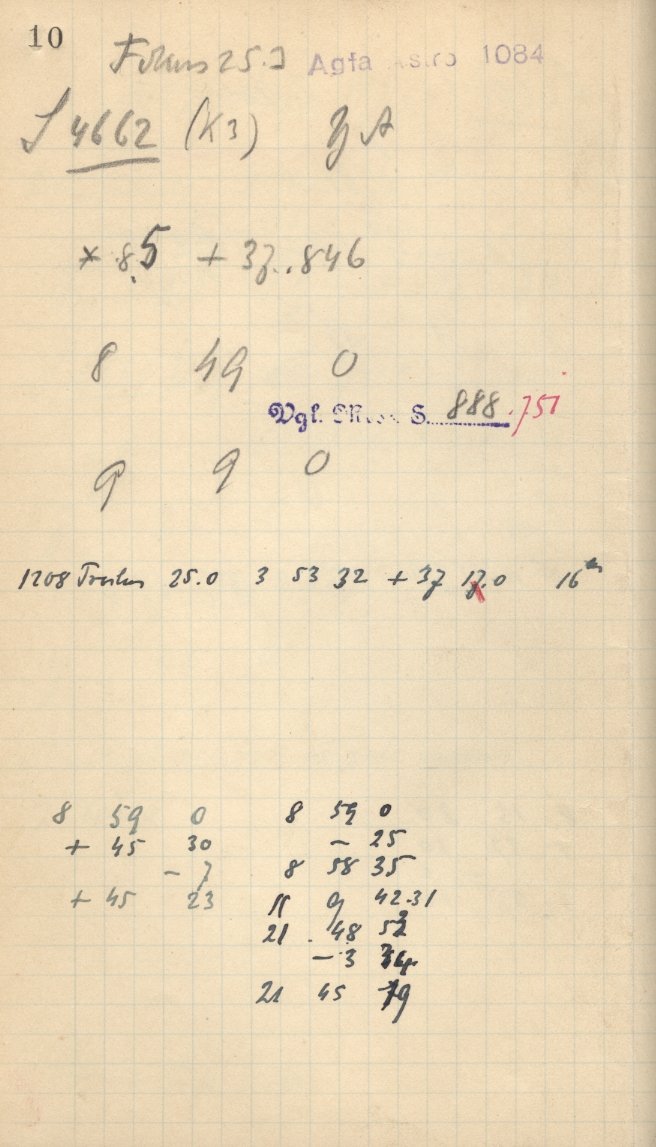 10
Fokus 25.0 Agfa Astro 1084
S 4662 (K3)
* 8.5 + 37..846
8 49 0
Vgl. Mess S. 888.751
9 9 0
1208 Troilus 25.0 3 53 32 + 37 17.0 16m
8 59 0 8 59 0
+ 45 30 - 25
- 7 8 58 35
+ 45 23 11 9 42.31
21 48 52
- 3 34
21 45 19